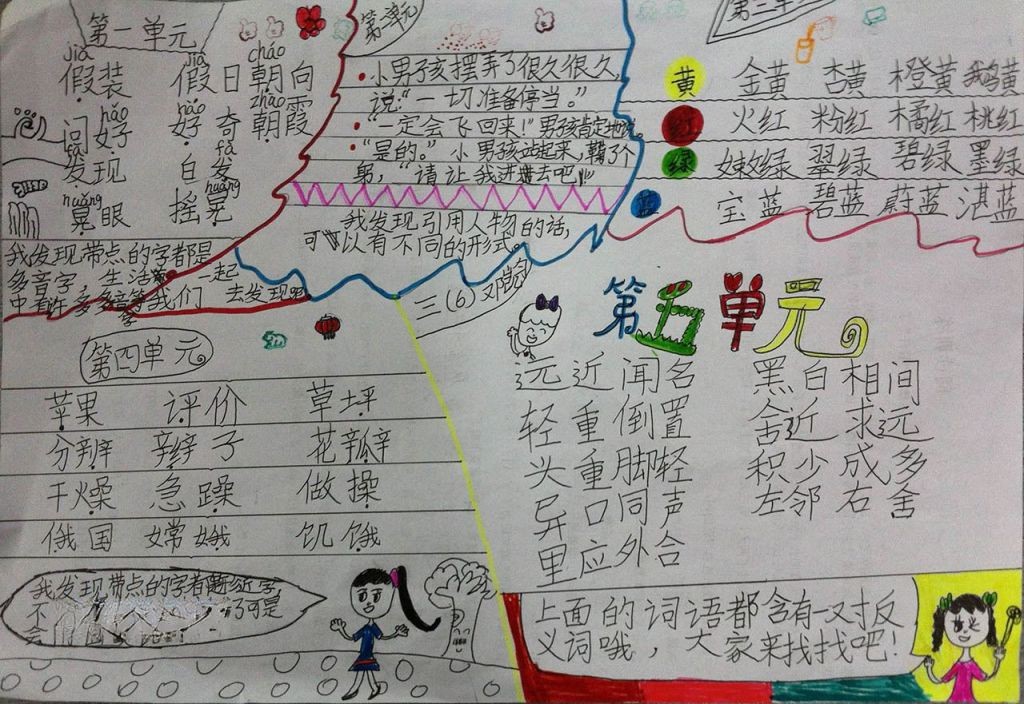 第一单元
jiǎ jià cháo
假装 假日 朝向
hǎo hào zhāo
问好 好奇 朝霞
fā fà
发现 白发
huǎng huàng
晃眼 摇晃
我发现带点的字都是
多音字 生活 一起
中有许多多音字等我们 去发现吧
第二单元
小男孩摆弄了很久很久,
说:“一切准备停当。”
“一定会飞回来!”男孩肯定地说。
“是的。”小男孩站起来,鞠了个
躬,“请让我进去吧!”
我发现引用人物的话,
可以有不同的形式。
第三单
黄 金黄 杏黄 橙黄 鹅黄
红 火红 粉红 橘红 桃红
绿 嫩绿 翠绿 碧绿 墨绿
蓝 宝蓝 碧蓝 蔚蓝 湛蓝
三(6) 邓
第四单元
苹果 评价 草坪
分辨 辫子 花瓣
干燥 急躁 做操
俄国 嫦娥 饥饿
我发现带点的字都 形近字
不
第五单元
远近闻名 黑白相间
轻重倒置 舍近求远
头重脚轻 积少成多
异口同声 左邻右舍
里应外合
上面的词语都含有一对反
义词哦,大家来找找吧!